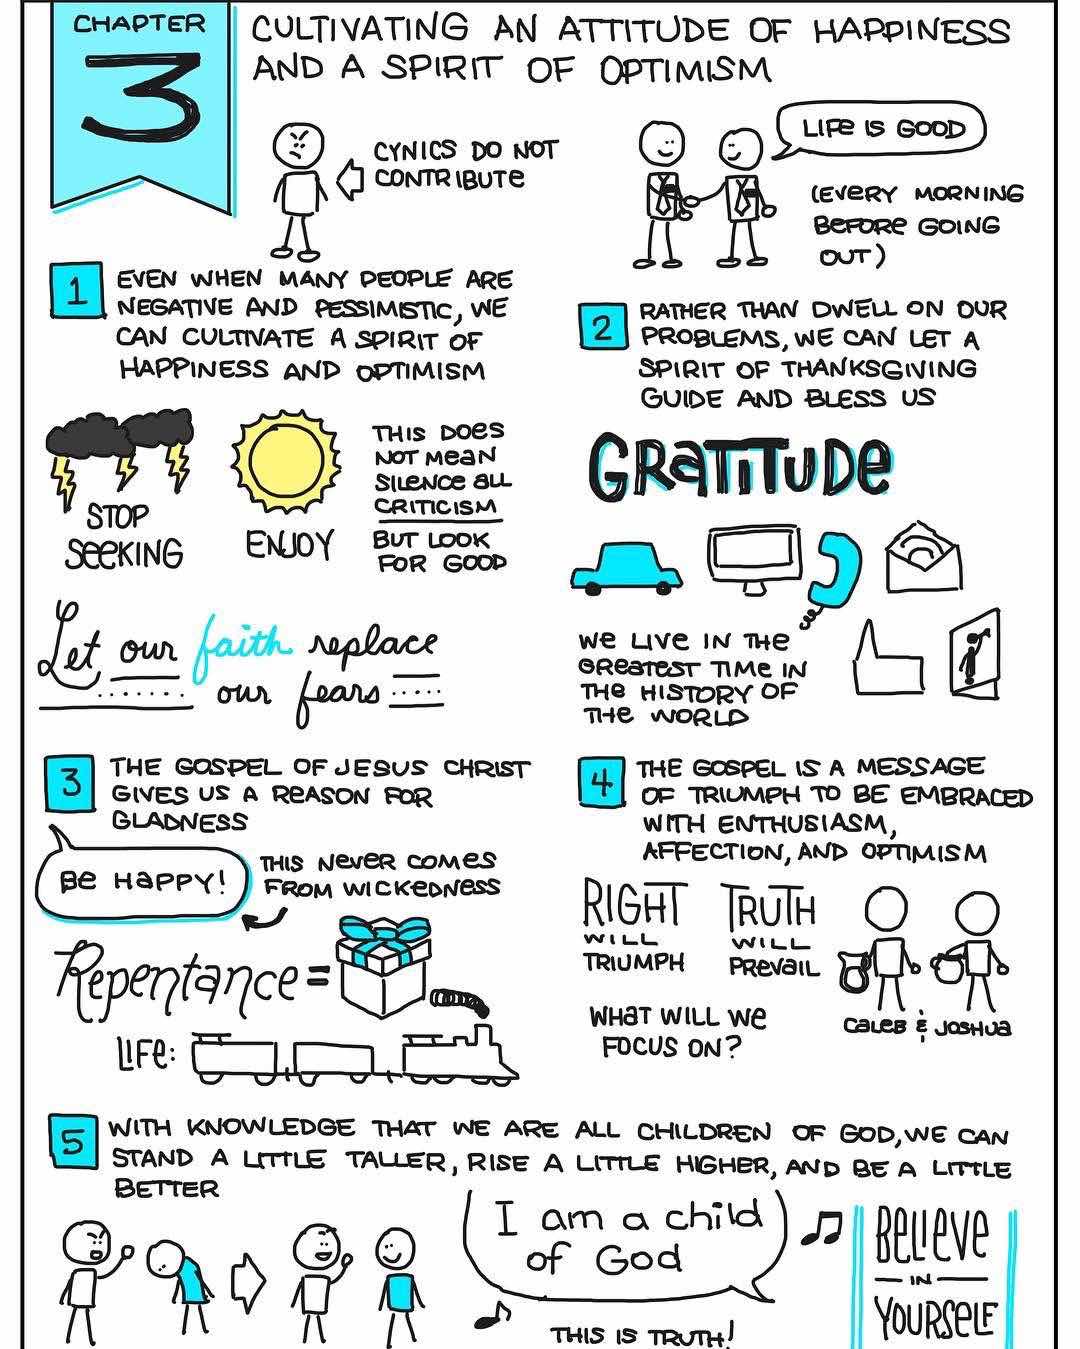 CHAPTER
3
CULTIVATING AN ATTITUDE OF HAPPINESS
AND A SPIRIT OF OPTIMISM
CYNICS DO NOT
CONTRIBUTE
LIFE IS GOOD
(EVERY MORNING
BEFORE GOING
OUT)
1
EVEN WHEN MANY PEOPLE ARE
NEGATIVE AND PESSIMISTIC, WE
CAN CULTIVATE A SPIRIT OF
HAPPINESS AND OPTIMISM
2
RATHER THAN DWELL ON OUR
PROBLEMS, WE CAN LET A
SPIRIT OF THANKSGIVING
GUIDE AND BLESS US
STOP
SEEKING
ENJOY
THIS DOES
NOT MEAN
SILENCE ALL
CRITICISM
BUT LOOK
FOR GOOD
GRATITUDE
WE LIVE IN THE
GREATEST TIME IN
THE HISTORY OF
THE WORLD
Let our faith replace
our fears
3
THE GOSPEL OF JESUS CHRIST
GIVES US A REASON FOR
GLADNESS
BE HAPPY!
THIS NEVER COMES
FROM WICKEDNESS
Repentance =
LIFE:
4
THE GOSPEL IS A MESSAGE
OF TRIUMPH TO BE EMBRACED
WITH ENTHUSIASM,
AFFECTION, AND OPTIMISM
RIGHT
WILL
TRIUMPH
TRUTH
WILL
PREVAIL
WHAT WILL WE
FOCUS ON?
CALEB & JOSHUA
5
WITH KNOWLEDGE THAT WE ARE ALL CHILDREN OF GOD, WE CAN
STAND A LITTLE TALLER, RISE A LITTLE HIGHER, AND BE A LITTLE
BETTER
I am a child
of God
THIS IS TRUTH!
BELIEVE
IN
YOURSELF